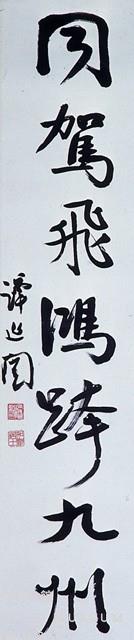 同駕飛鴻跨九州
譚延闓